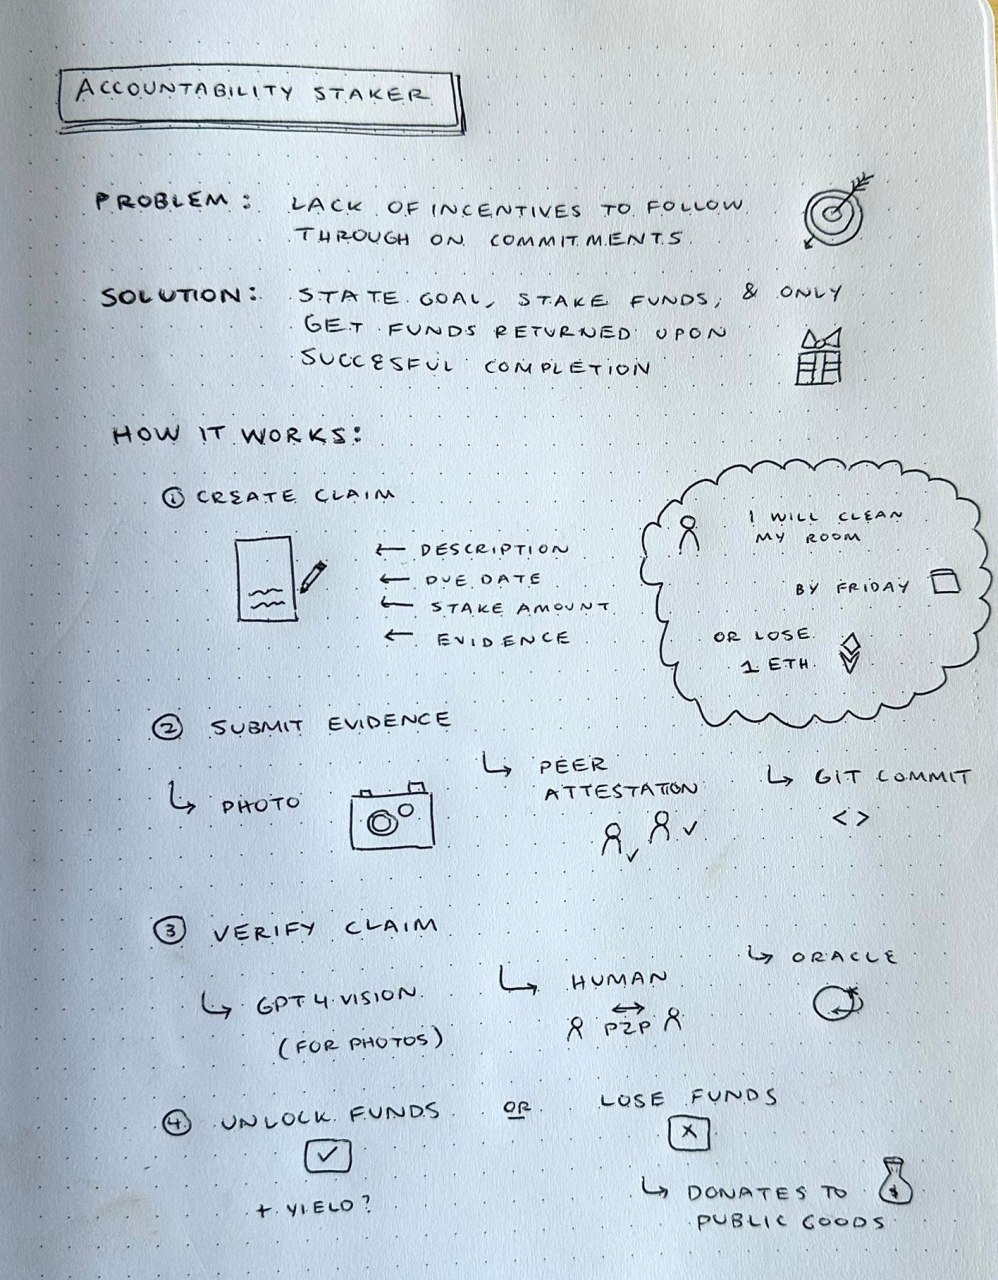 ACCOUNTABILITY STAKER
PROBLEM: LACK OF INCENTIVES TO FOLLOW
THROUGH ON COMMITMENTS.
SOLUTION: STATE GOAL, STAKE FUNDS, & ONLY
GET FUNDS RETURNED UPON
SUCCESFUL COMPLETION
HOW IT WORKS:
① CREATE CLAIM
← DESCRIPTION
← DUE DATE
← STAKE AMOUNT
← EVIDENCE
I WILL CLEAN
MY ROOM
BY FRIDAY
OR LOSE
1 ETH.
② SUBMIT EVIDENCE
↳ PHOTO
↳ PEER
ATTESTATION
↳ GIT COMMIT
< >
③ VERIFY CLAIM
↳ GPT 4 VISION
(FOR PHOTOS)
↳ HUMAN
P2P
↳ ORACLE
④ UNLOCK FUNDS OR LOSE FUNDS
+ YIELD?
↳ DONATES TO
PUBLIC GOODS
$